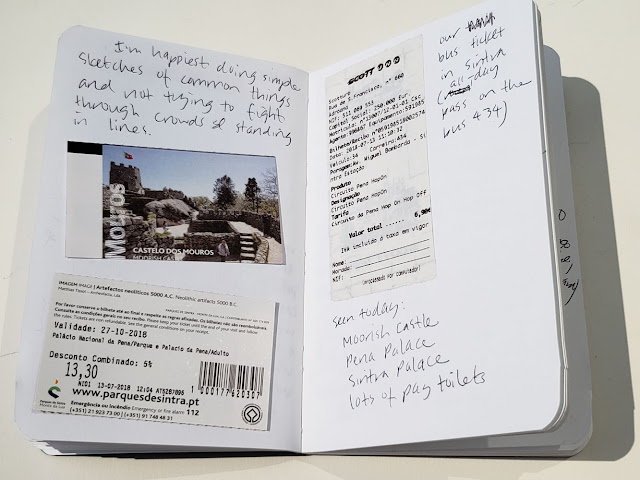 I'm happiest doing simple
sketches of common things
and not trying to fight
through crowds & standing
in lines.
Mouros
CASTELO DOS MOUROS
MOORISH CA
IMAGEM IMAGE | Artefactos neolíticos 5000 A.C. Neolithic artifacts 5000 B.C.
Por favor conserve o bilhete até ao final e respeite as regras afixadas. Os bilhetes não são reembolsáveis.
Validade: 27-10-2018
Palácio Nacional da Pena/Parque e Palacio da Pena/Adulto
Desconto Combinado: 5%
13,30
13-07-2018 12:04
1000177620307
www.parquesdesintra.pt
Parques de Sintra
Monte da Lua
Emergência ou Incêndio Emergency or fire alarm 112
(+351) 21 923 73 00 | (+351) 91 748 48 21
SCOTT
Scotturb
Rua de S.Francisco, nº 660
Adroana
NIF: 511 089 551
Capital Social: 250.000 Eur.
Data: 2018-07-13 11:10:32
Veículo:34 Carreira:434
Paragem:Av. Miguel Bombarda - Si
ntra Estação
Produto
Circuito Pena HopOn
Designação
Circuito Pena HopOn
Tarifa
Circuito da Pena Hop On Hop Off
6,90€
Valor total ......
Iva incluído à taxa em vigor
Nome:
Morada:
NIF:
(Processado por Computador)
our
bus ticket
in Sintra
(all-day
pass on the
bus 434)
seen today:
Moorish Castle
Pena Palace
Sintra Palace
lots of pay toilets